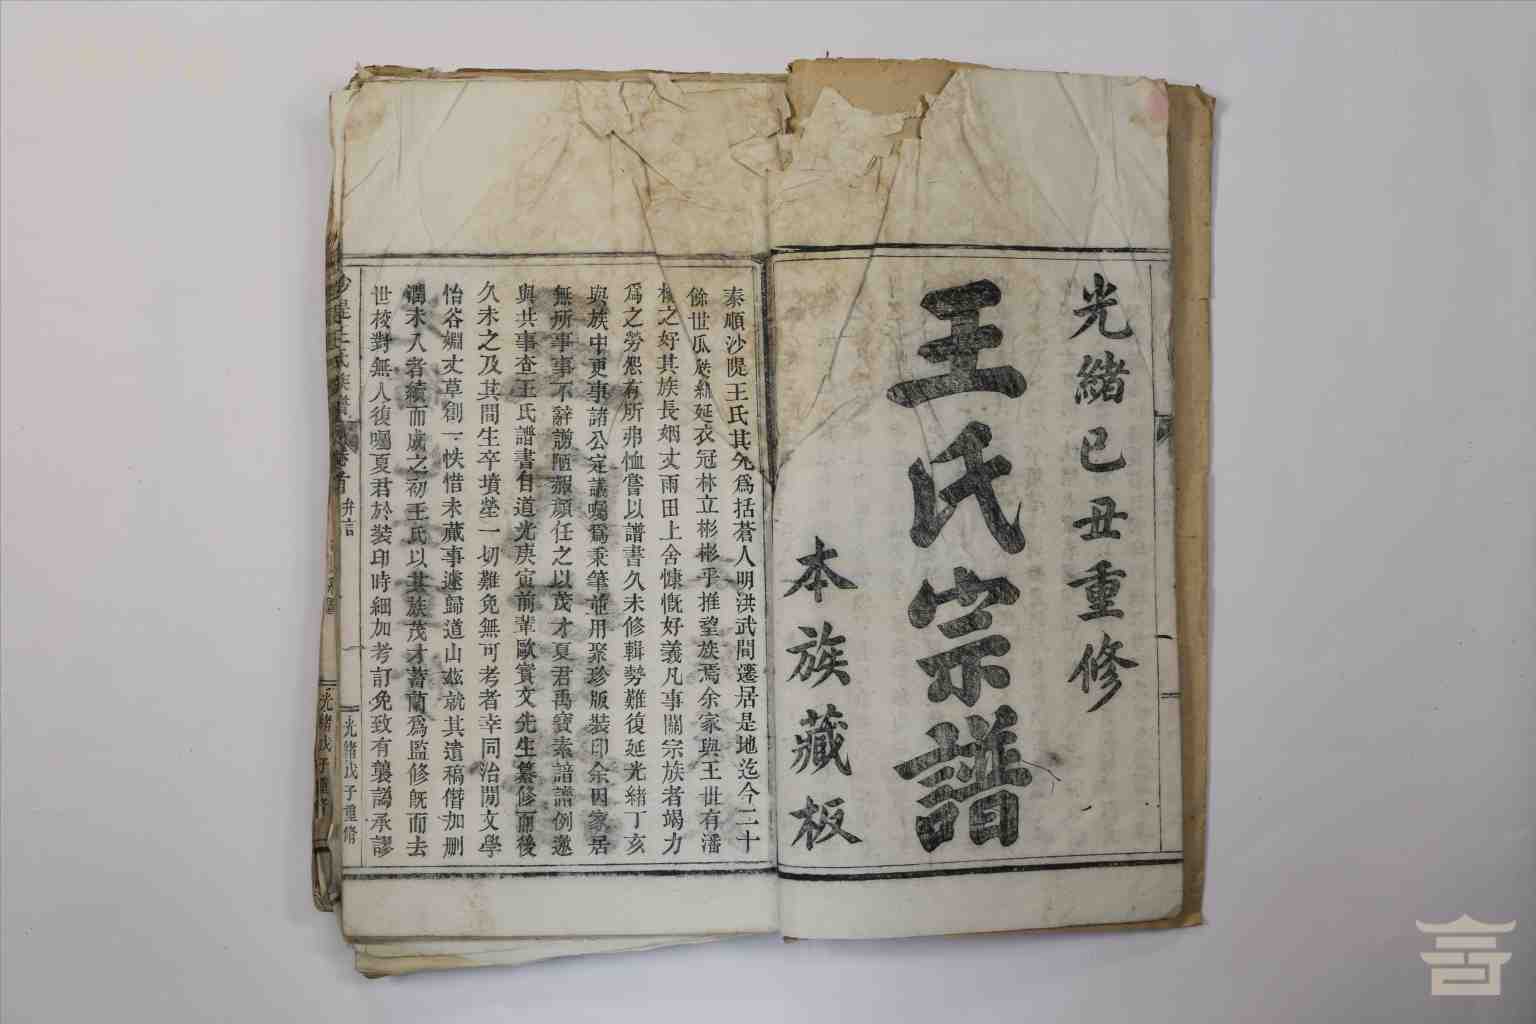 光緒己丑重修
王氏宗譜
本族藏板
泰順沙隄王氏其先爲括蒼人明洪武間遷居是地迄今二十
餘世瓜瓞綿延衣冠林立彬彬乎推望族焉余家與王世有潘
楊之好其族長姻丈雨田上舍慷慨好義凡事關宗族者竭力
爲之勞怨有所弗恤嘗以譜書久未修輯勢難復延光緒丁亥
與族中更事諸公定議囑爲秉筆並用聚珍版裝印余因家居
無所事事不辭謭陋赧顏任之以茂才夏君禹寶素諳譜例邀
與共事查王氏譜書自道光庚寅前輩歐賓文先生纂修而後
久未之及其間生卒墳塋一切難免無可考者幸同治間文學
怡谷姻丈草創一帙惜未蕆事遽歸道山茲就其遺稿偕加刪
潤未入者續而成之初王氏以其族茂才蓄蘭爲監修旣而去
世校對無人復囑夏君於裝印時細加考訂免致有襲譌承謬
沙隄王氏族譜 卷首 弁言 一 光緒戊子重脩